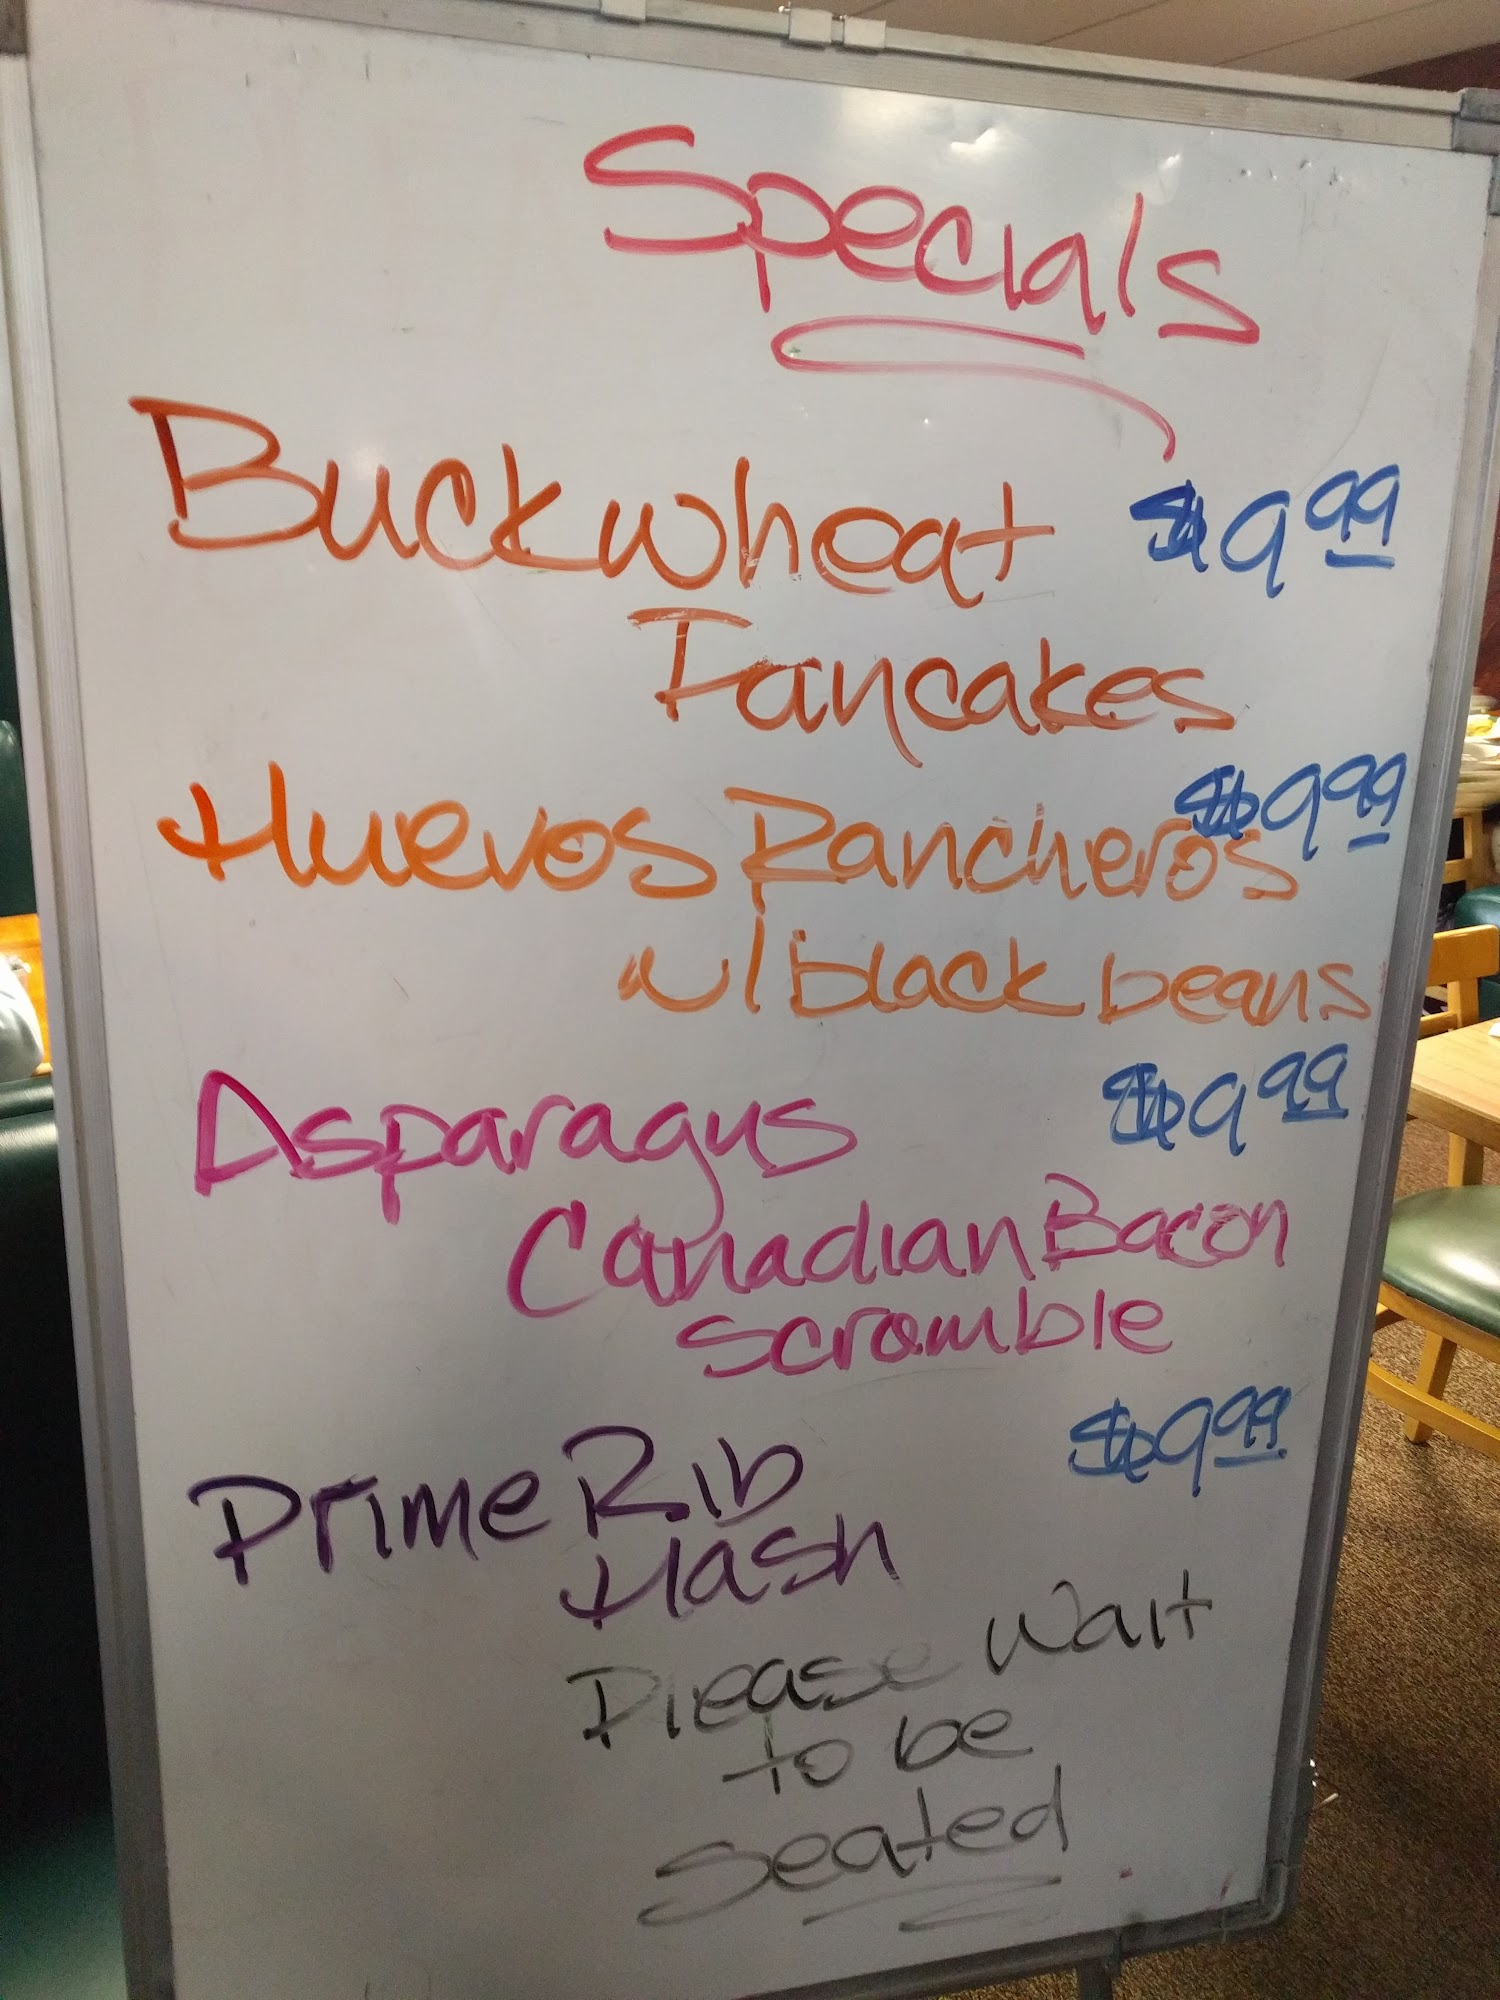 Specials
Buckwheat $9.99
Pancakes
Huevos Rancheros $9.99
w/black beans
Asparagus $9.99
Canadian Bacon
scramble
Prime Rib $9.99
Hash
Please Wait
to be
seated